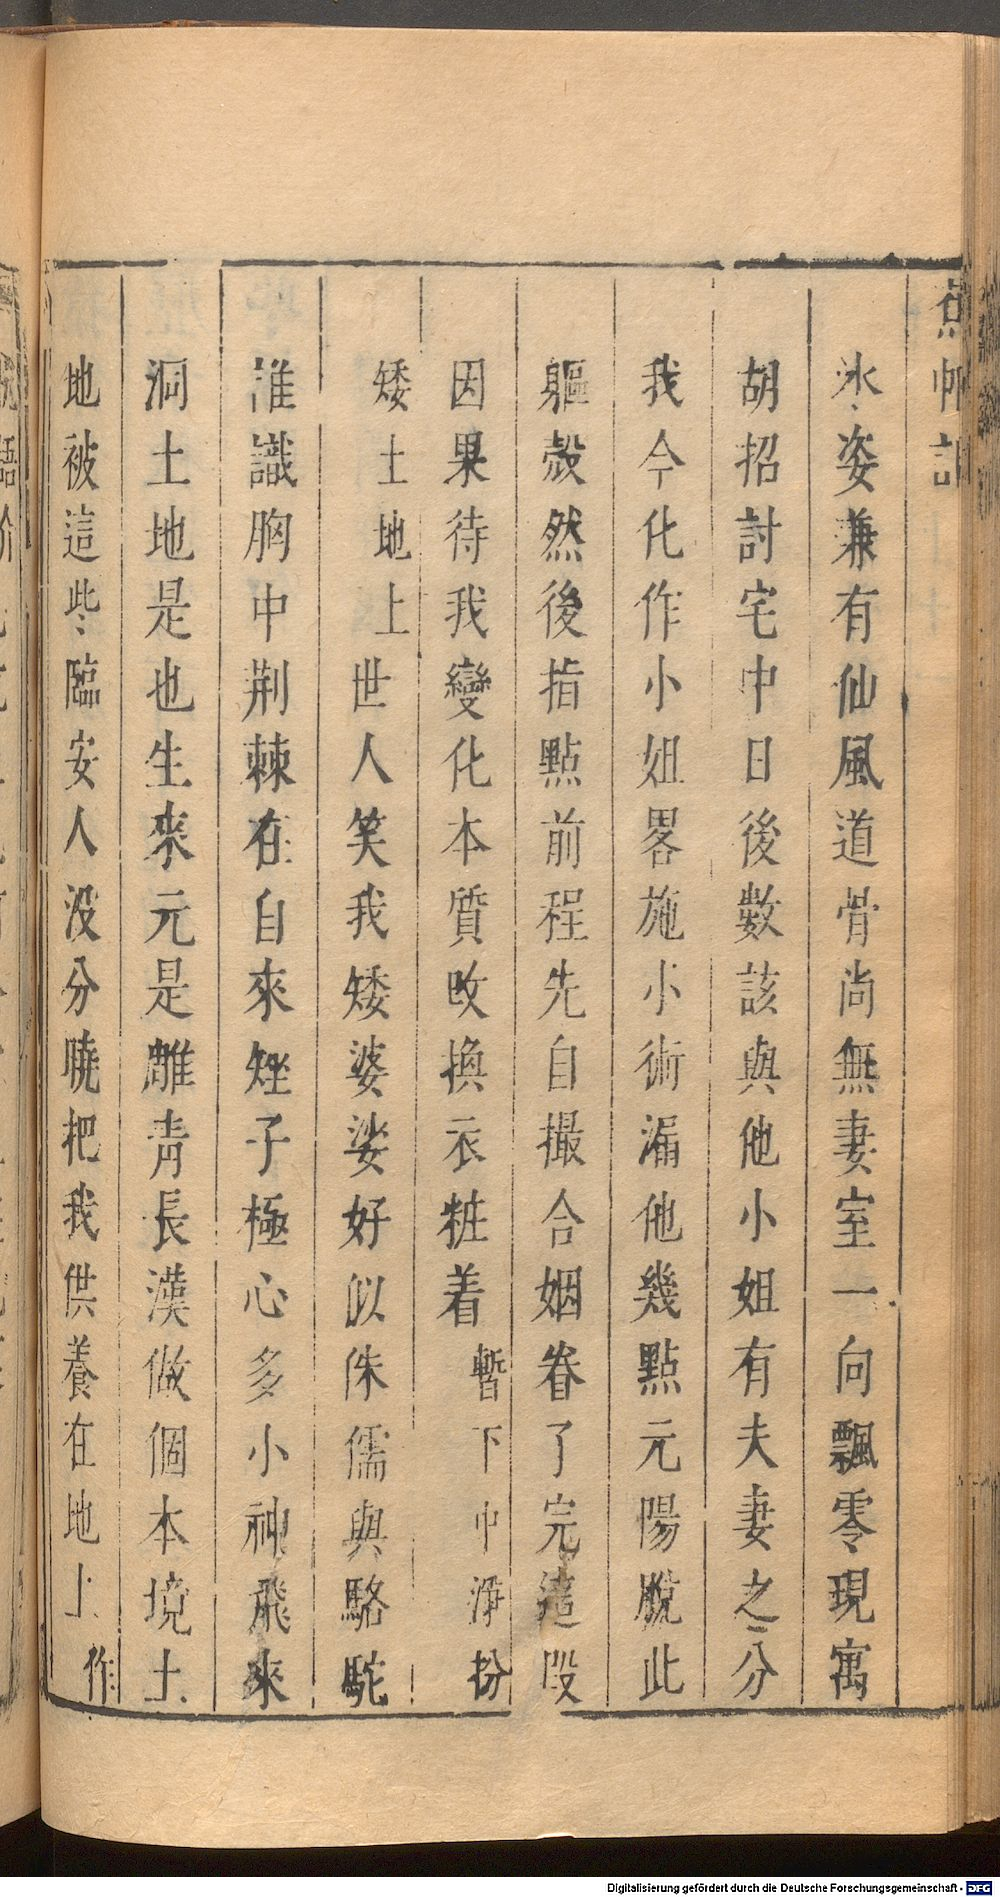 蕉帕記
氷姿兼有仙風道骨尚無妻室一向飄零現寓
胡招討宅中日後數該與他小姐有夫妻之分
我今化作小姐畧施小術漏他幾點元陽脫此
軀殼然後指點前程先自撮合姻眷了完這段
因果待我變化本質改換衣粧着暫下中淨扮
矮土地上世人笑我矮婆娑好似侏儒與駱駝
誰識胸中荆棘在自來矬子極心多小神飛來
洞土地是也生來元是雕青長漢做個本境土
地被這些臨安人没分曉把我供養在地上作
Digitalisierung gefördert durch die Deutsche Forschungsgemeinschaft - DFG